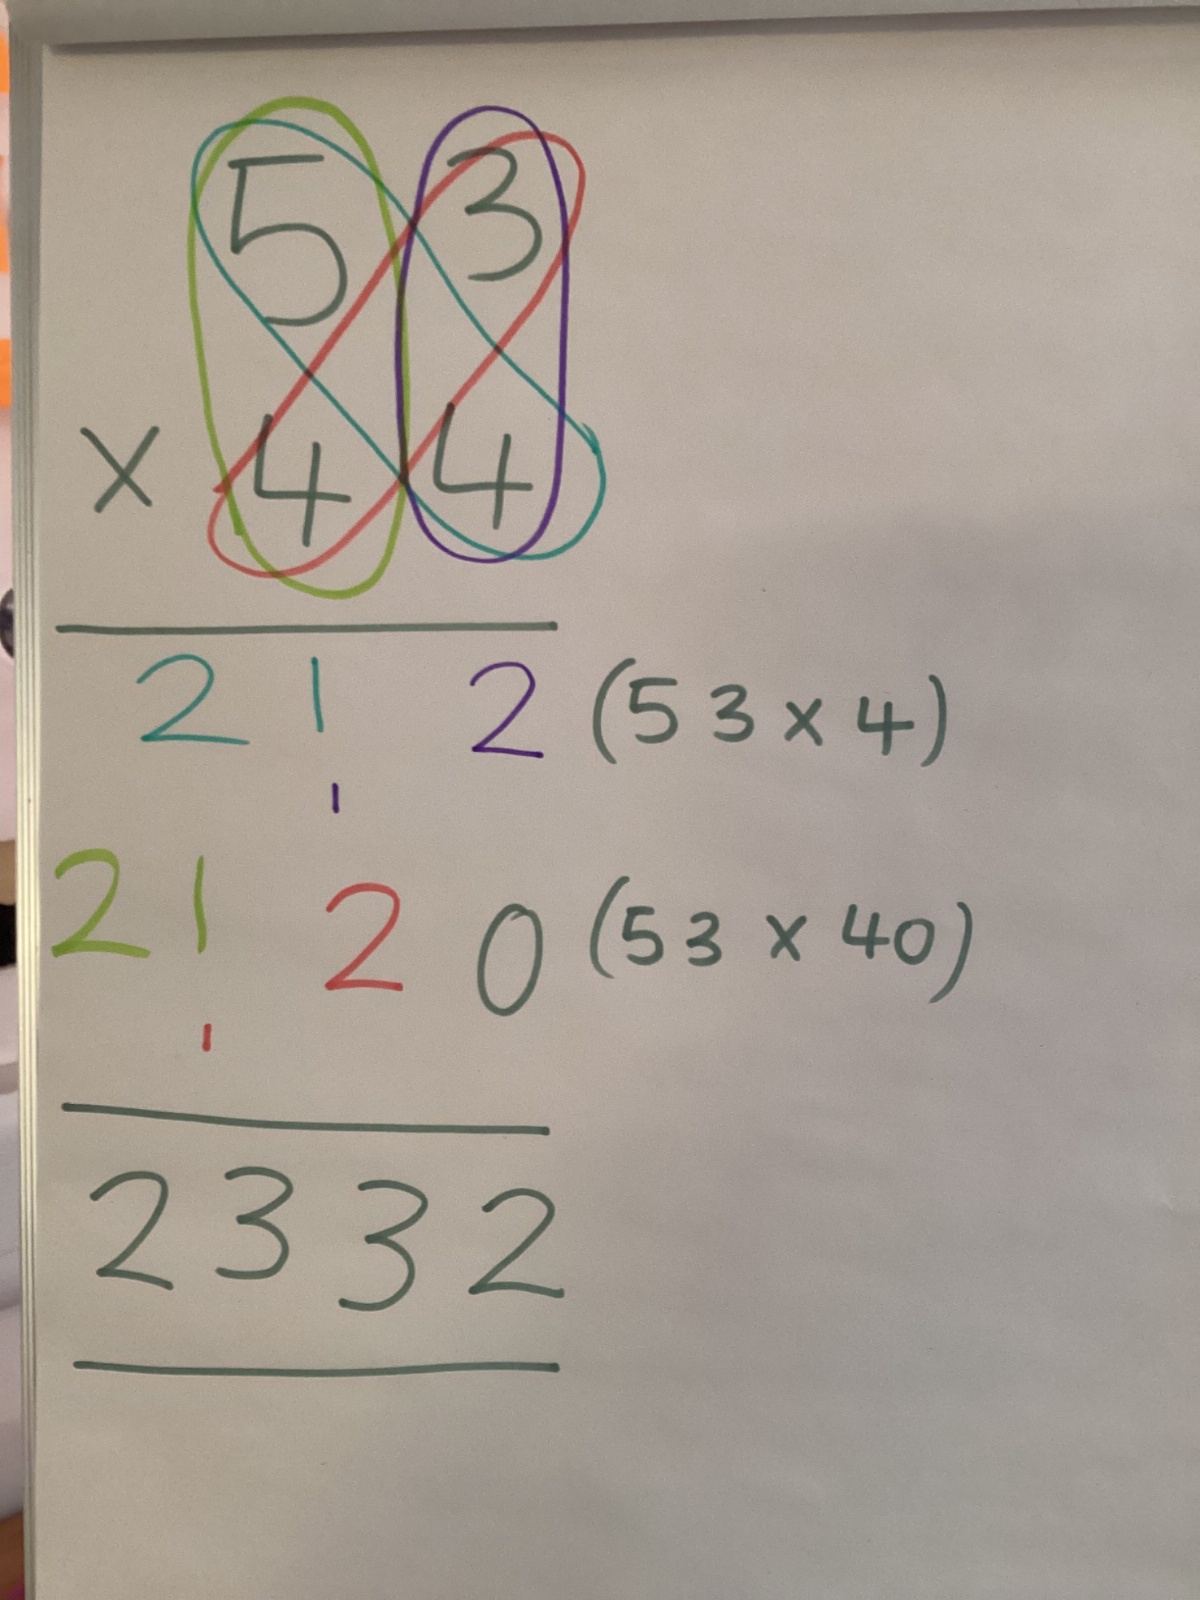 53
× 44
212 (53 × 4)
1
2120 (53 × 40)
1
2332